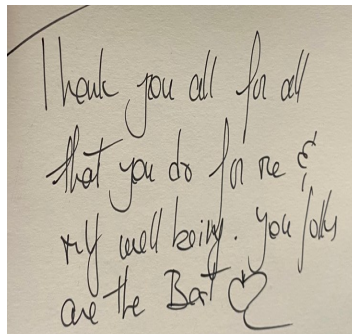 Thank you all for all
that you do for me &
my well being. You folks
are the Best ♡